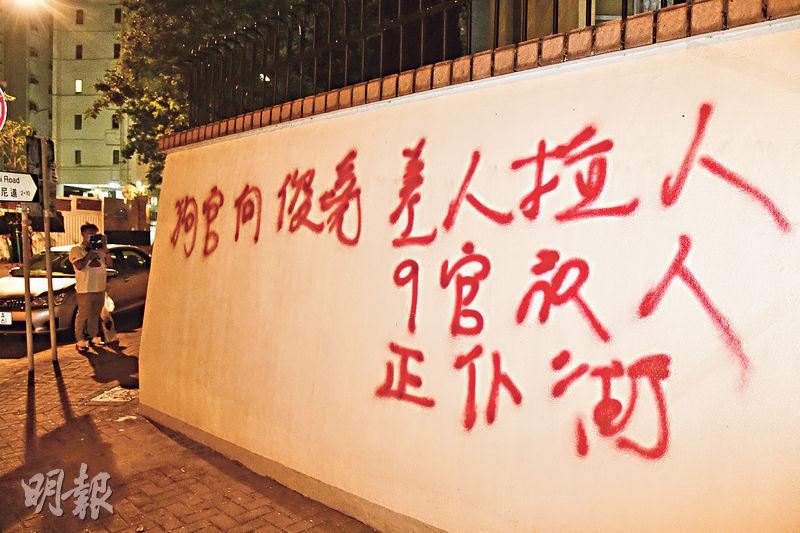 狗官向俊亮差人拉人
9官放人
正仆街
Road
尼道 2-10
明報